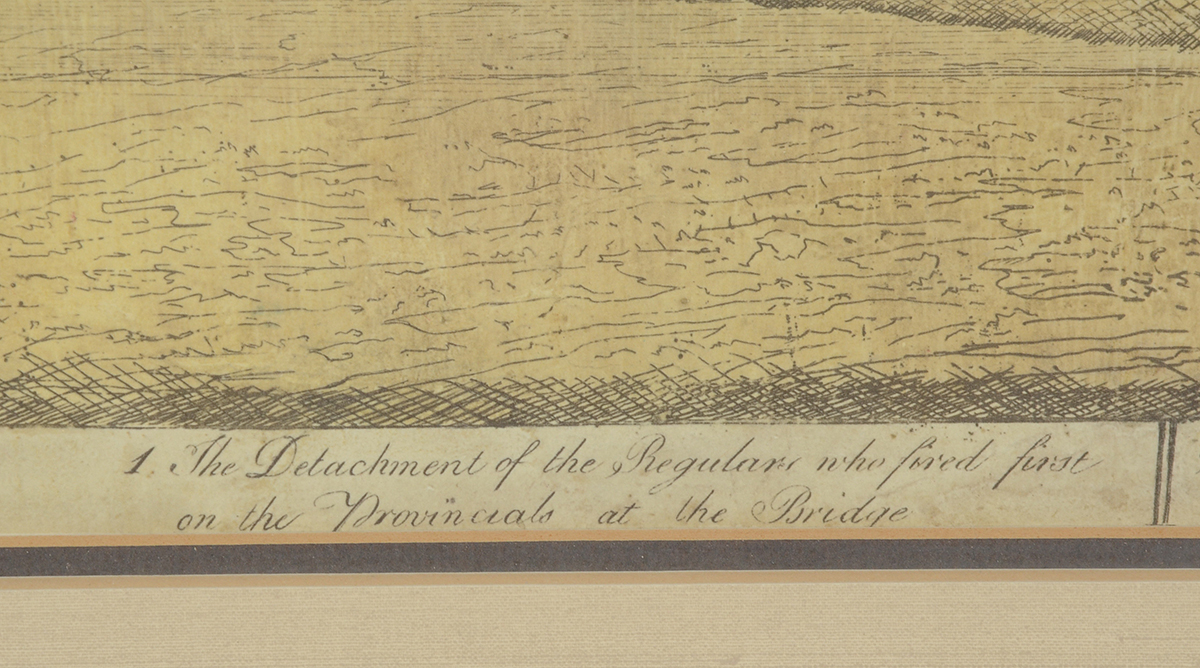 1 The Detachment of the Regulars who fired first
on the Provincials at the Bridge